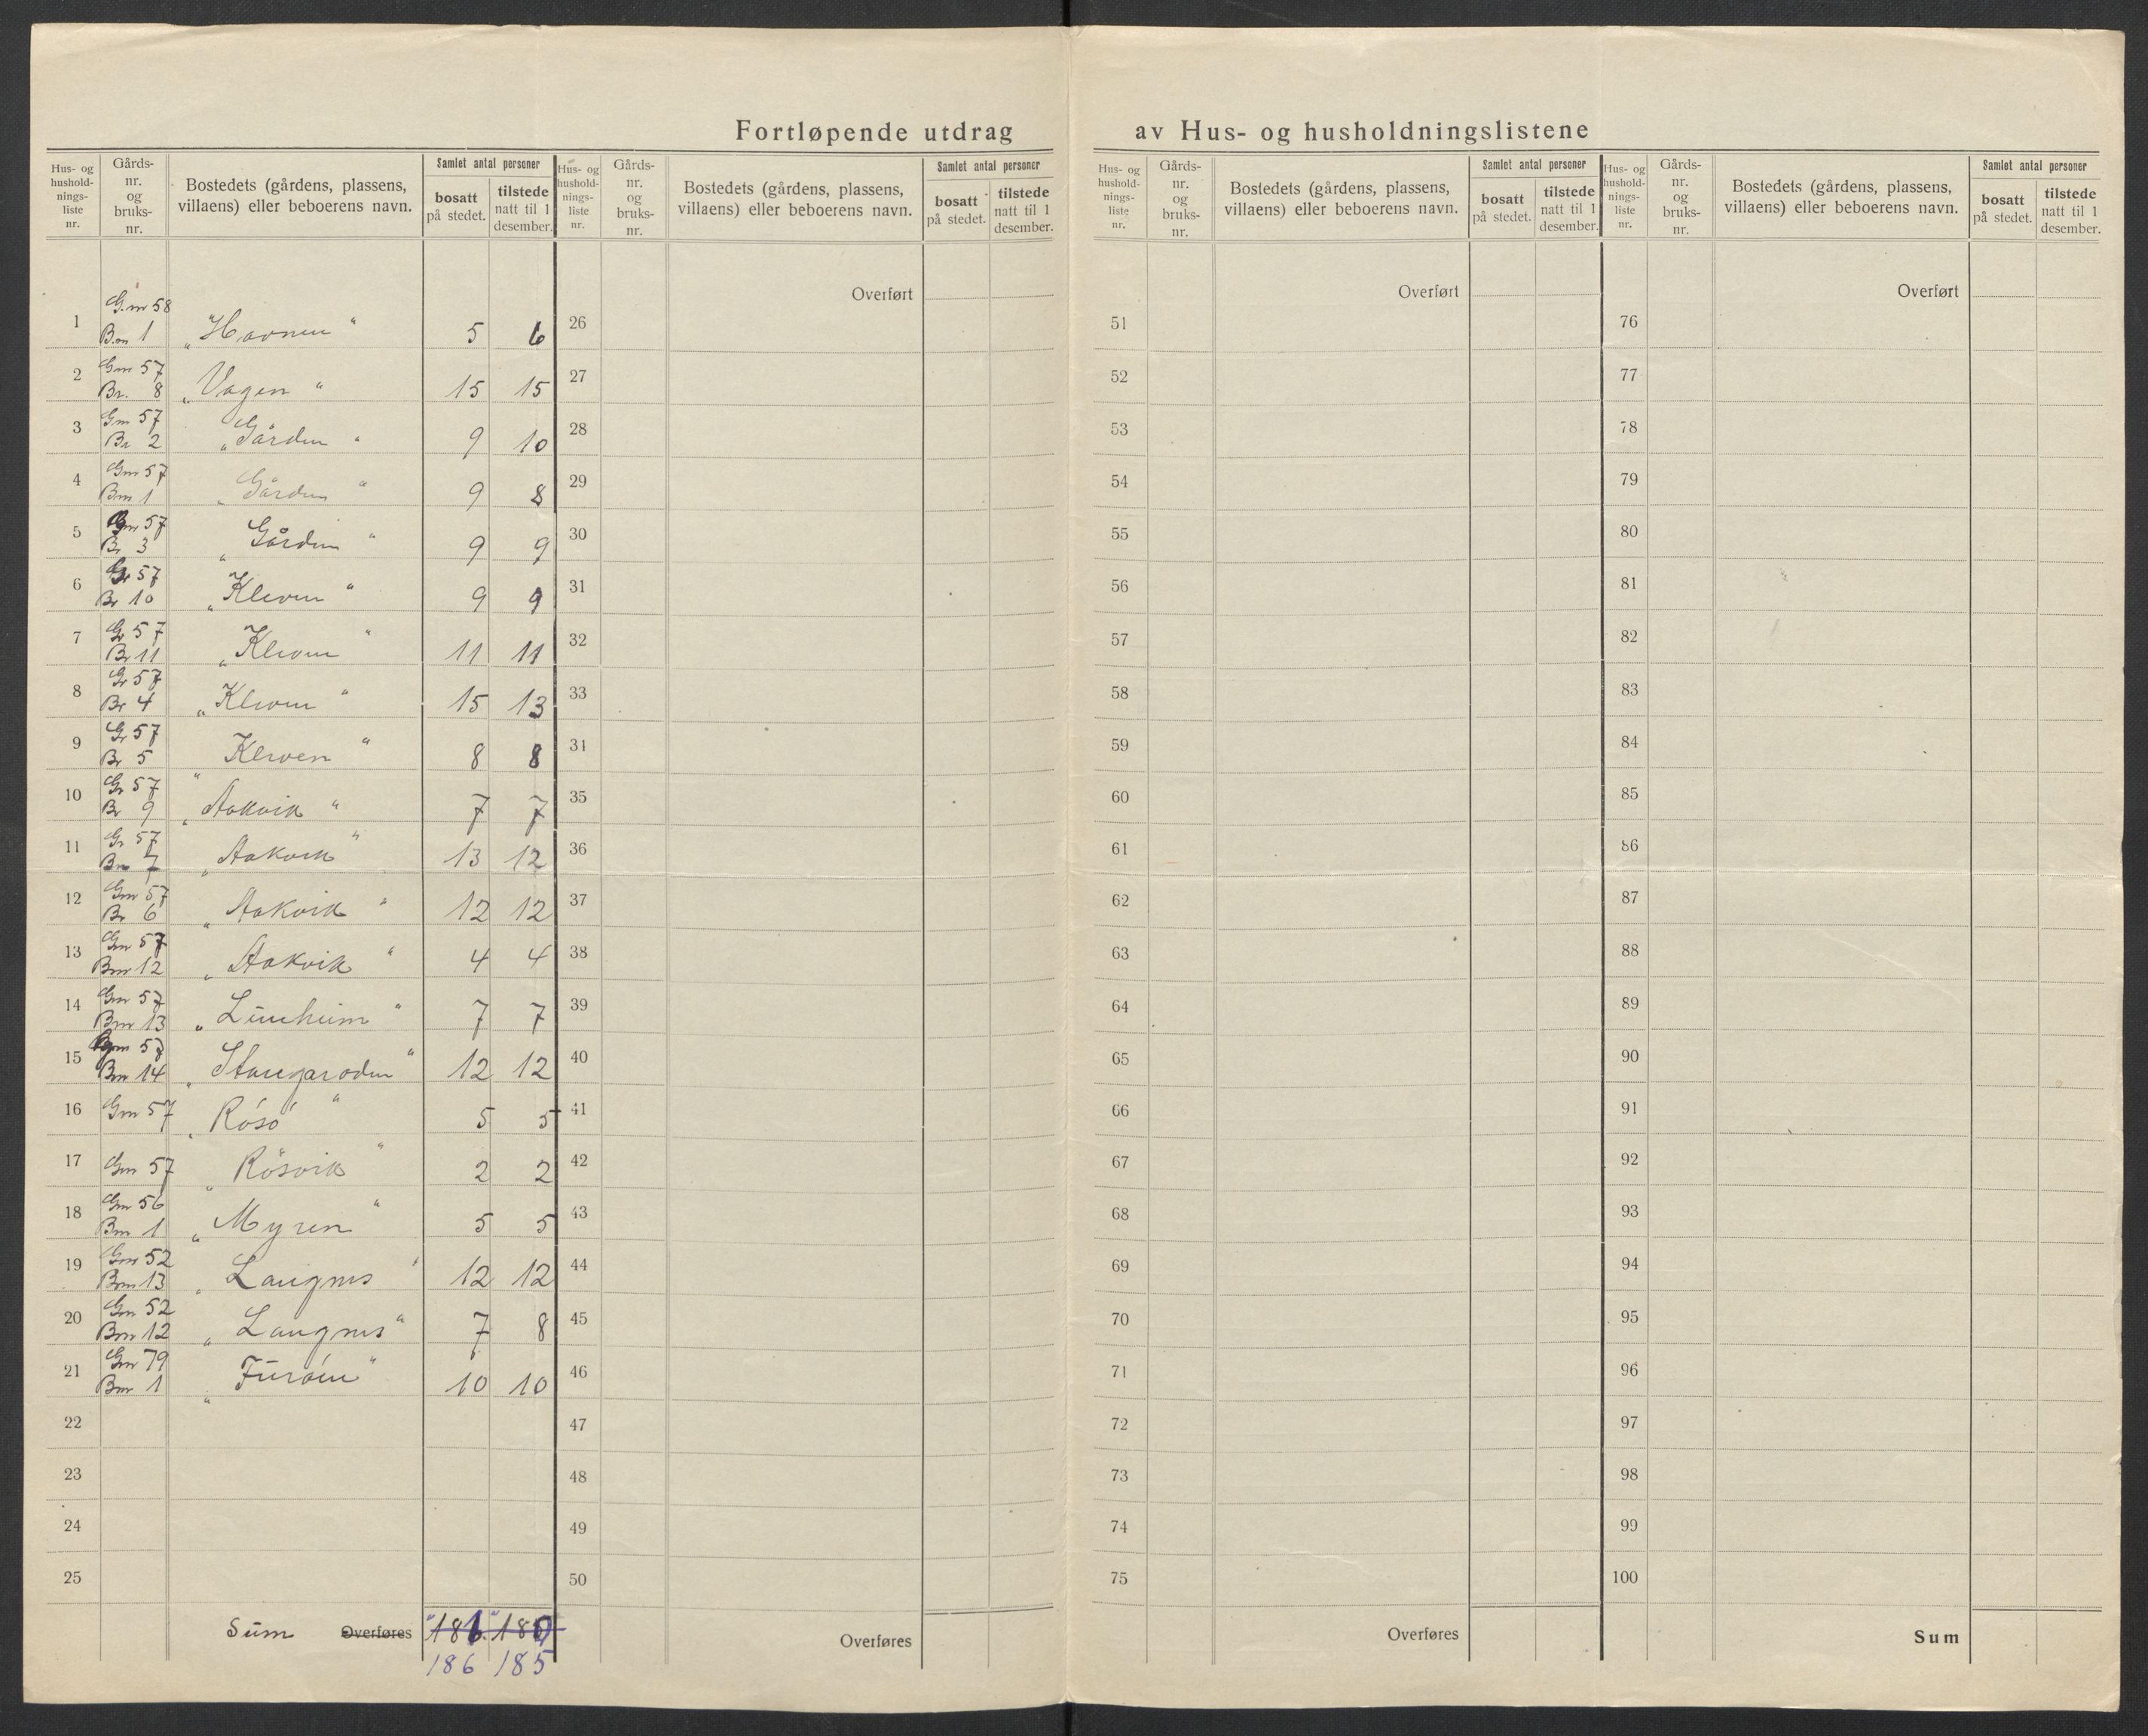 Fortløpende utdrag av Hus- og husholdningslistene
Hus- og hushold- nings- liste nr. | Gårds- nr. og bruks- nr. | Bostedets (gårdens, plassens, villaens) eller beboerens navn. | Samlet antal personer | bosatt på stedet. | tilstede natt til 1 desember.
Hus- og hushold- nings- liste nr. | Gårds- nr. og bruks- nr. | Bostedets (gårdens, plassens, villaens) eller beboerens navn. | Samlet antal personer | bosatt på stedet. | tilstede natt til 1 desember.
Hus- og hushold- nings- liste nr. | Gårds- nr. og bruks- nr. | Bostedets (gårdens, plassens, villaens) eller beboerens navn. | Samlet antal personer | bosatt på stedet. | tilstede natt til 1 desember.
Hus- og hushold- nings- liste nr. | Gårds- nr. og bruks- nr. | Bostedets (gårdens, plassens, villaens) eller beboerens navn. | Samlet antal personer | bosatt på stedet. | tilstede natt til 1 desember.
Overført Overført Overført
1 G.nr 58 B.nr 1 „Havnen" 5 6 26 51 76
2 Gnr 57 Br. 8 „Vagen" 15 15 27 52 77
3 Gnr 57 Br 2 „Gården" 9 10 28 53 78
4 Gnr 57 Bnr 1 „Gården" 9 8 29 54 79
5 Gnr 57 Br 3 „Gården" 9 9 30 55 80
6 Gr 57 Br 10 „Kleven" 9 9 31 56 81
7 Gr 57 Br 11 „Kleven" 11 11 32 57 82
8 Gr 57 Br 4 „Kleven" 15 13 33 58 83
9 Gr 57 Br 5 Kleven" 8 8 34 59 84
10 Gr 57 Br 9 „Aakvik" 7 7 35 60 85
11 Gr 57 Bnr 7 „Aakvik" 13 12 36 61 86
12 Gnr 57 Br 6 „Aakvik" 12 12 37 62 87
13 Gnr 57 Bnr 12 „Aakvik" 4 4 38 63 88
14 Gnr 57 Bnr 13 7 7 39 64 89
15 Gnr 57 Bnr 14 12 12 40 65 90
16 Gnr 57 „Rósó" 5 5 41 66 91
17 Gnr 57 „Rösvik" 2 2 42 67 92
18 Gnr 56 Bnr 1 „Myren" 5 5 43 68 93
19 Gnr 52 Bnr 13 „Laugnes" 12 12 44 69 94
20 Gnr 52 Bnr 12 „Laugnes" 7 8 45 70 95
21 Gnr 79 Bnr 1 „Furöen" 10 10 46 71 96
22 47 72 97
23 48 73 98
24 49 74 99
25 50 75 100
Sum Overføres Overføres Overføres Sum
186 185